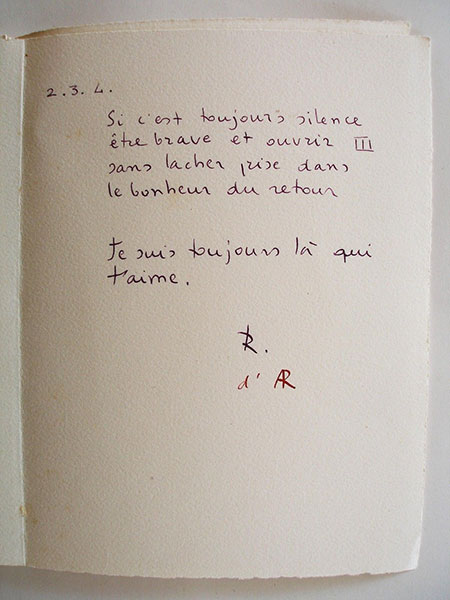 2.3.4.
Si c'est toujours silence
être brave et ouvrir III
sans lacher prise dans
le bonheur du retour
Je suis toujours là qui
t'aime.
R.
d' AR